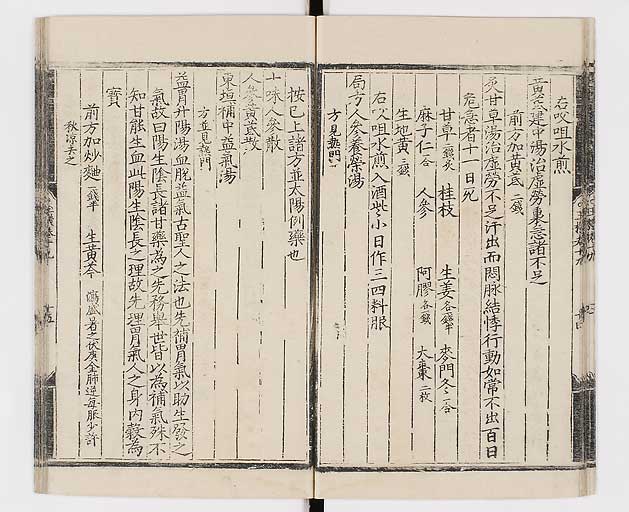 右㕮咀水煎
黄芪建中湯治虛勞裏急諸不足
前方加黄芪一錢
炙甘草湯治虛勞不足汗出而悶脉結悸行動如常不出百日
危急者十一日死
甘草二錢炙 桂枝 生姜各錢半 麥門冬二合
麻子仁一合 人參 阿膠各一錢 大棗二枚
生地黄三錢
右㕮咀水煎入酒些小日作三四料服
局方人參養榮湯
方見熱門
按已上諸方並太陽例藥也
十味人參散
人參黄芪散
東垣補中益氣湯
方並見熱門
益胃升陽湯血脫益氣古聖人之法也先補胃氣以助生發之
氣故曰陽生陰長諸甘藥為之先務舉世皆以為補氣殊不
知甘能生血此陽生陰長之理故先理胃氣人之身内榖為
寳
前方加炒麯一錢半 生黄芩 瀉盛暑之伏庚金肺逆每服少許
秋凉去之